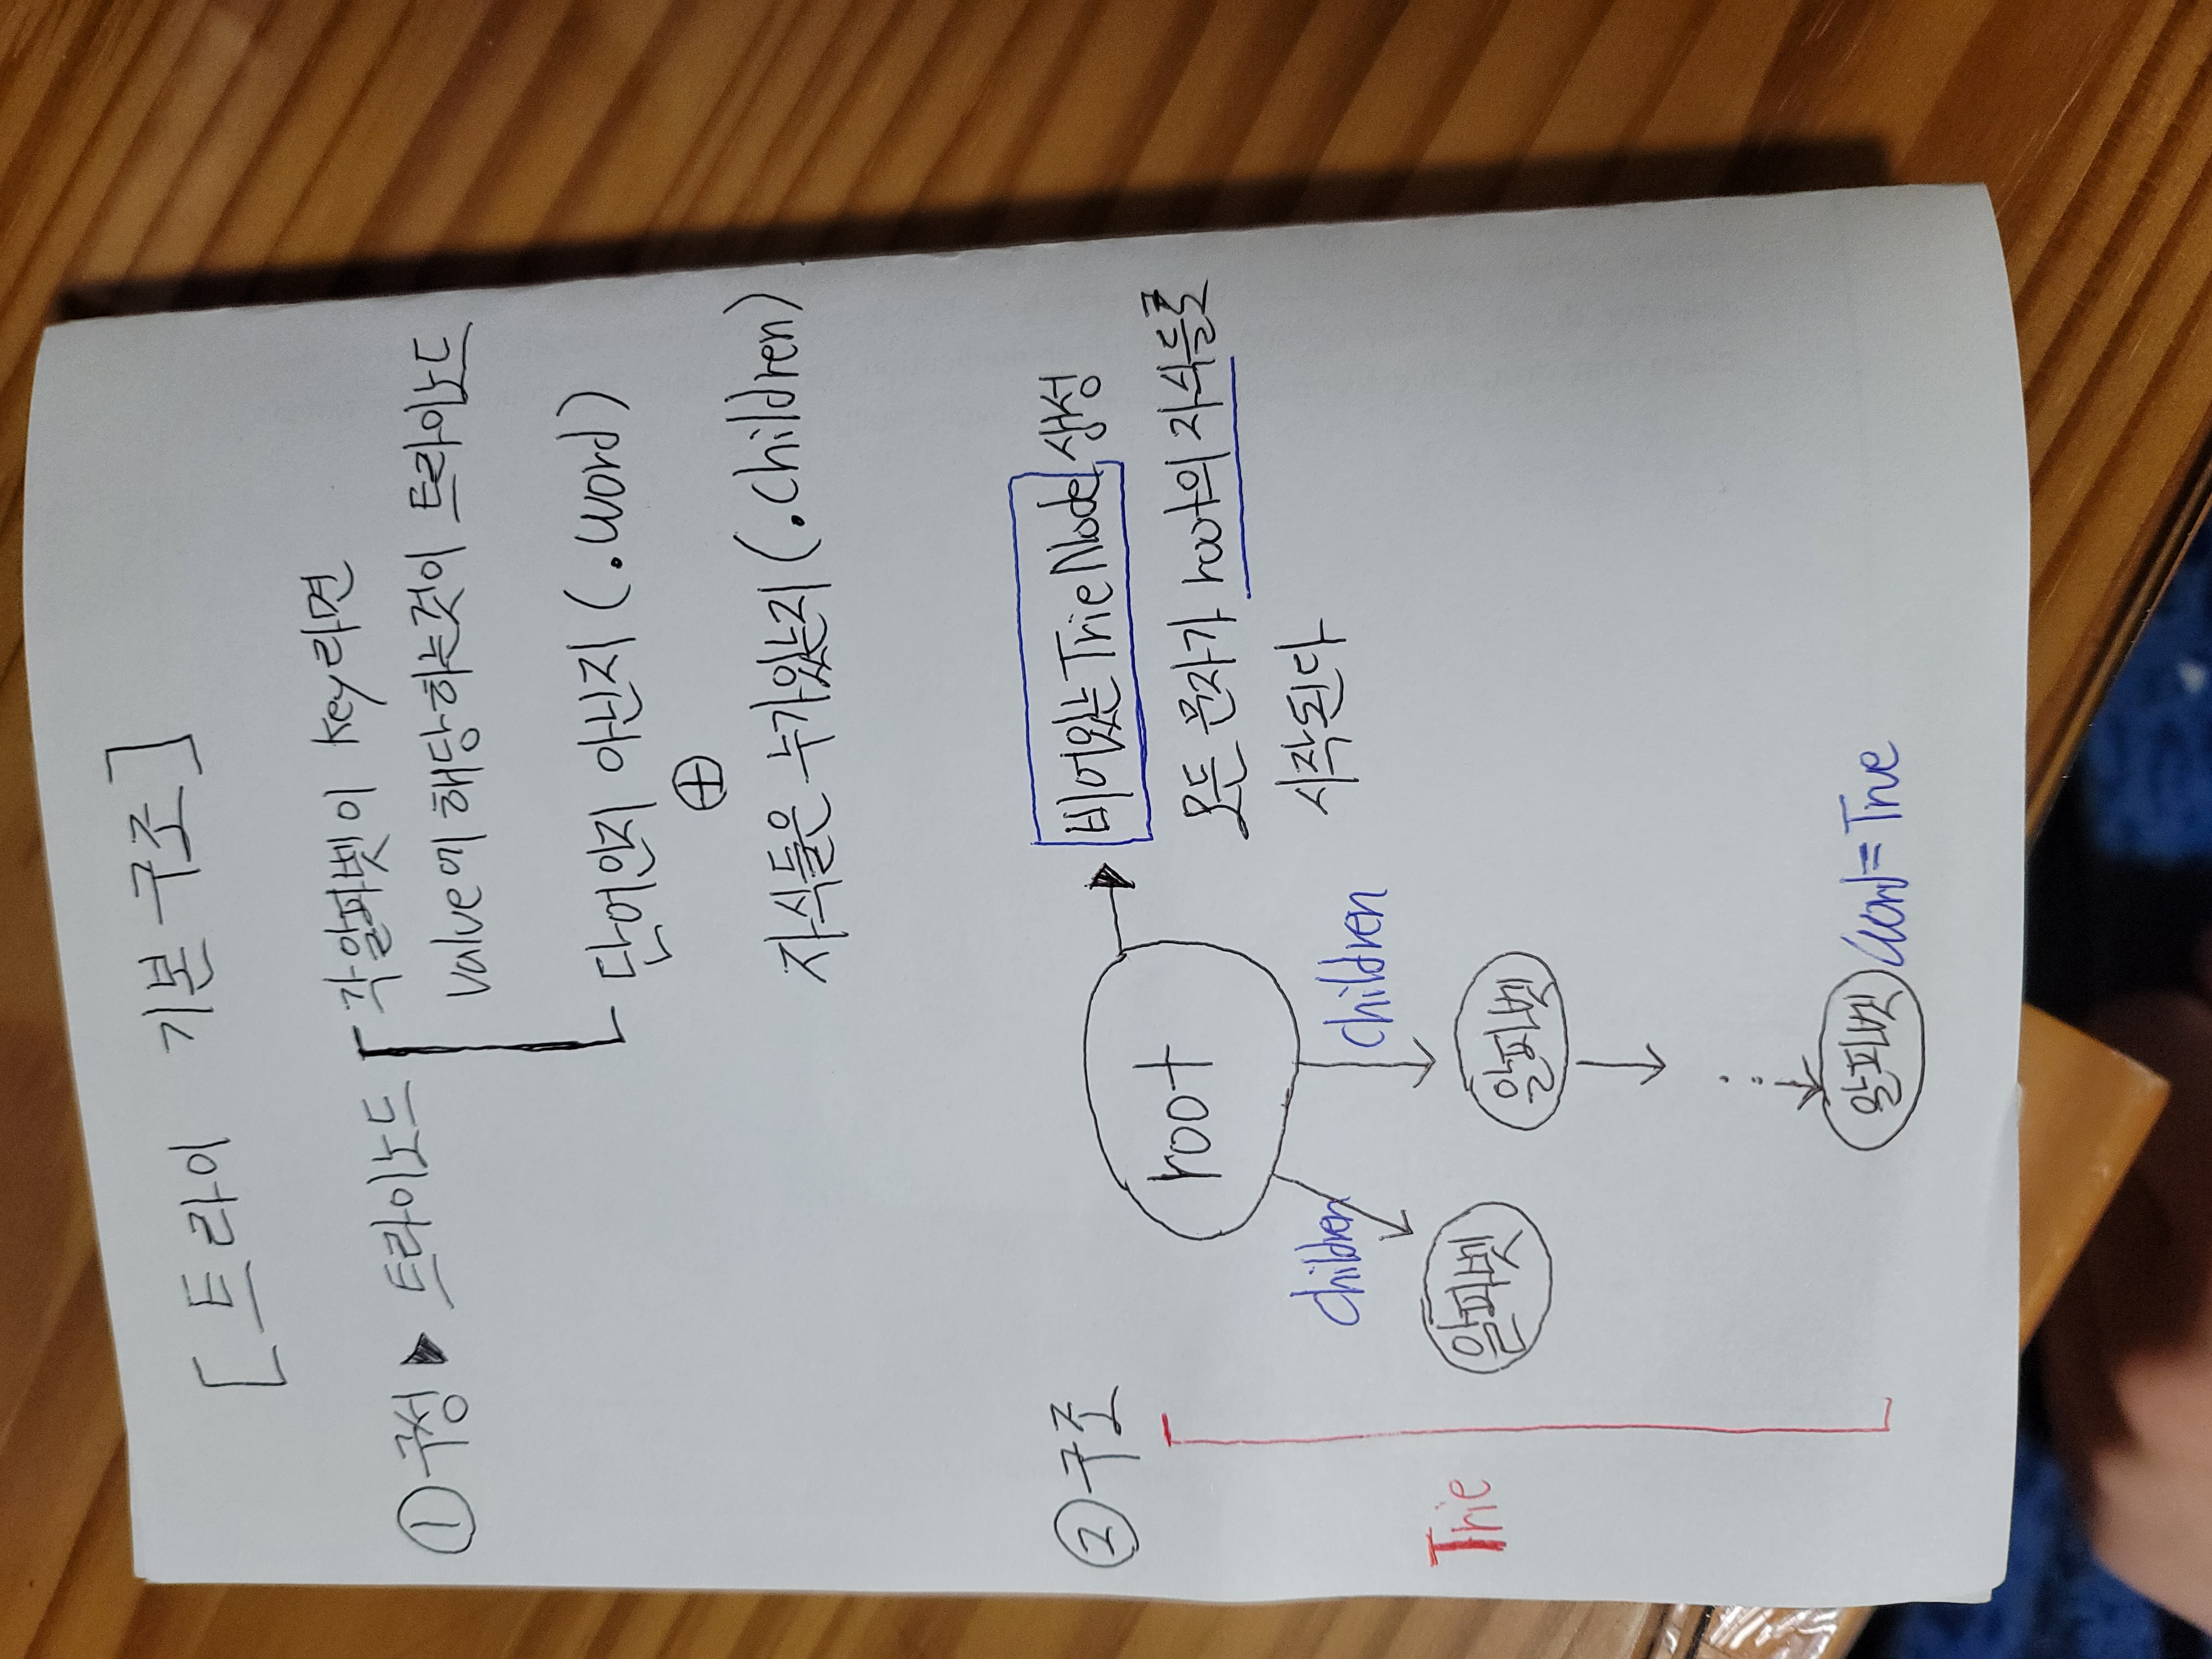 [트라이 기본구조]
① 구성 ▶ 트라이노드
각알파벳이 key라면
value에 해당하는것이 트라이노드
단어인지 아닌지 (.word)
⊕
자식들은 누가있는지 (.children)
② 구조
root
비어있는 TrieNode 생성
모든 문자가 root의 자식들로
시작된다
children
children
Trie
알파벳
알파벳
알파벳 word=True